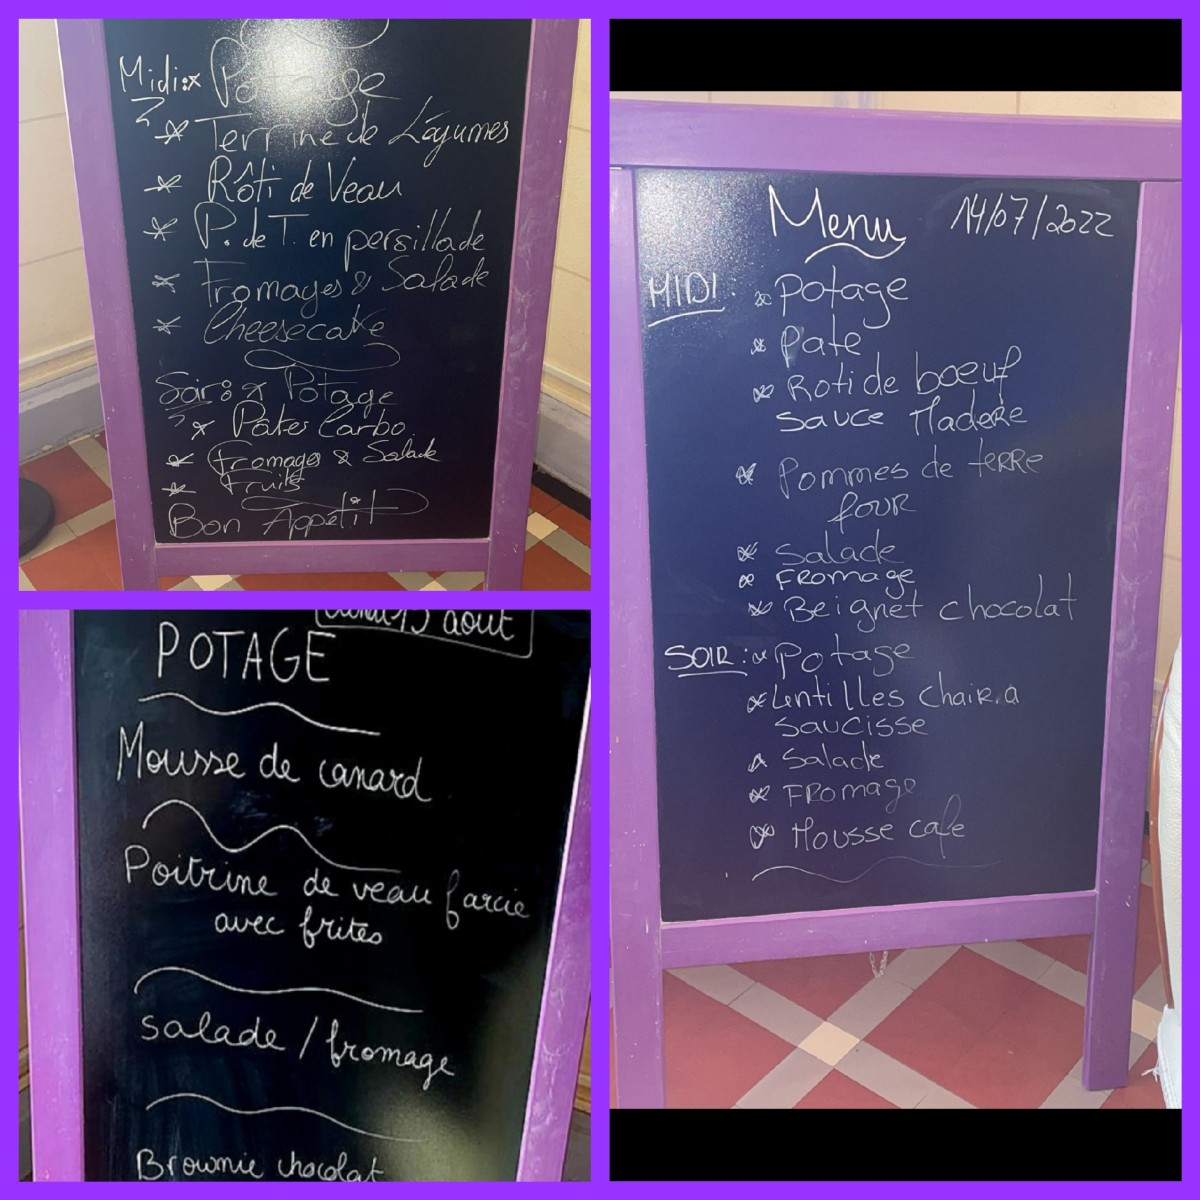 Midi: x Potage
x Terrine de Légumes
x Rôti de Veau
x P. de T. en persillade
x Fromages & Salade
x Cheesecake
Soir: x Potage
x Pâtes Carbo
x Fromages & Salade
x Fruits
Bon Appétit
août
POTAGE
Mousse de canard
Poitrine de veau farcie
avec frites
salade / fromage
Brownie chocolat
Menu 14/07/2022
MIDI: x Potage
x Pate
x Roti de boeuf
sauce Madere
x Pommes de terre
four
x Salade
x Fromage
x Beignet chocolat
SOIR: x Potage
x Lentilles chair a
saucisse
x Salade
x Fromage
x Mousse cafe